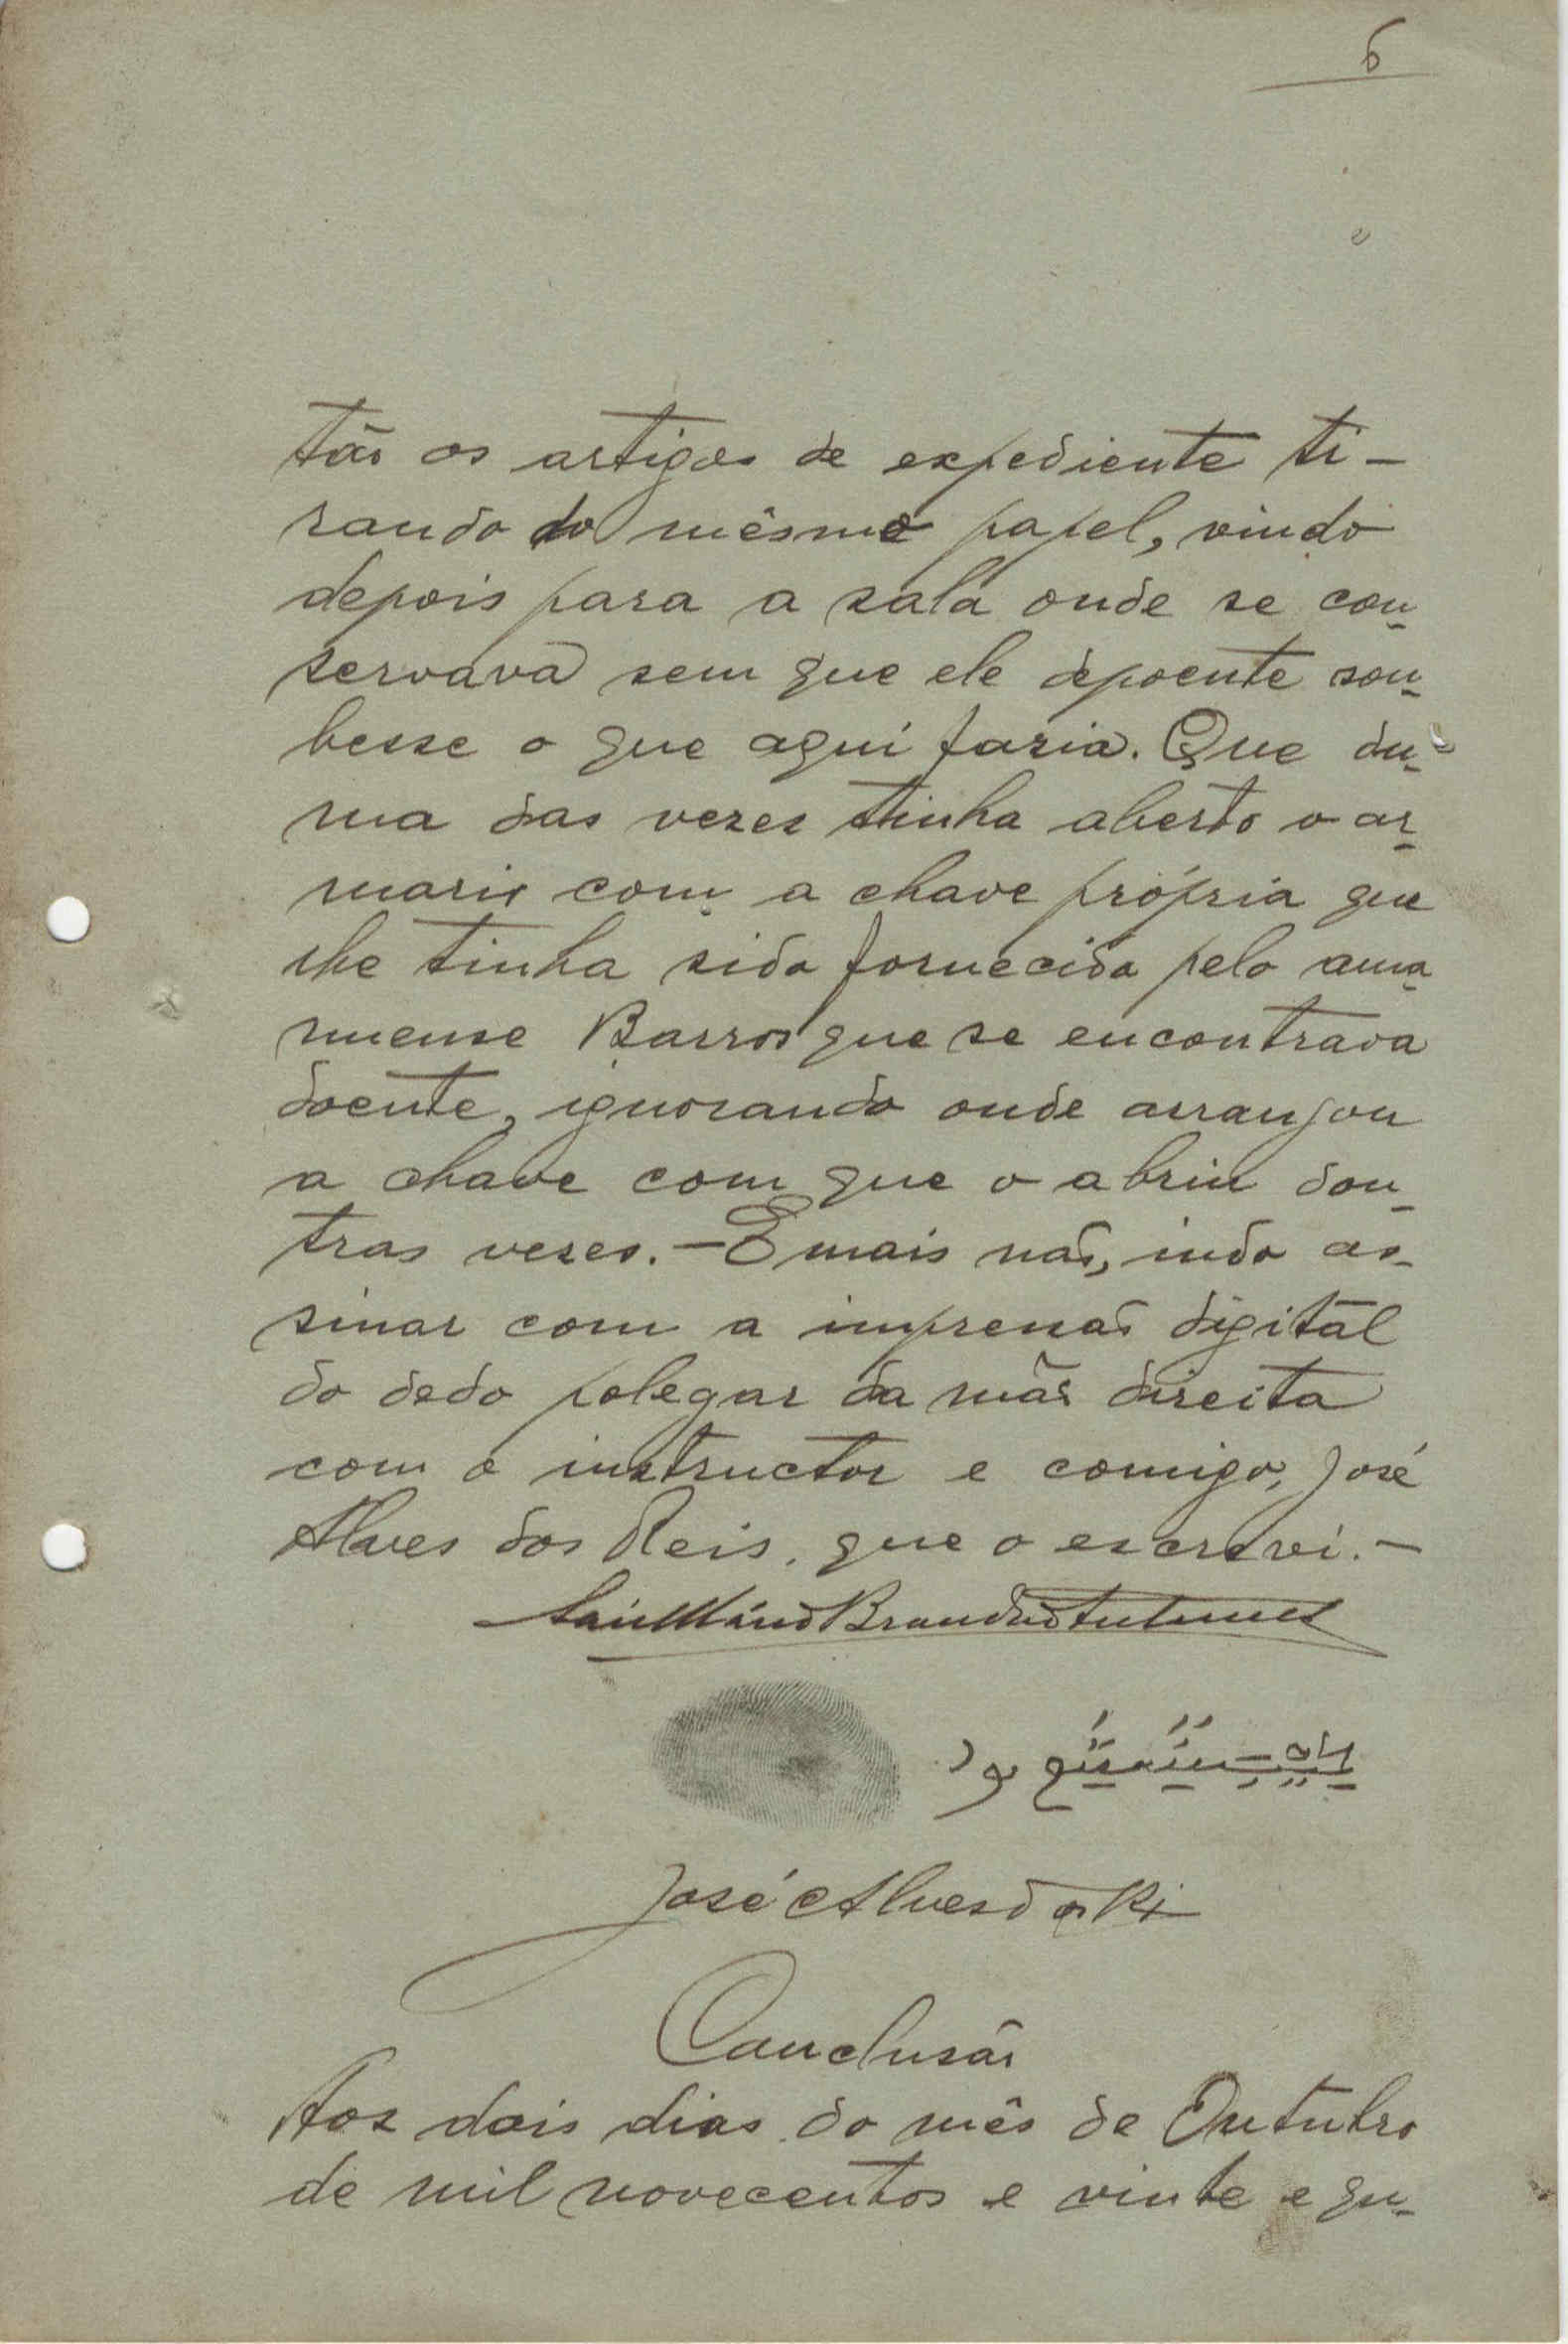 6
tão os artigos de expediente ti-
rando do mêsmo papel, vindo
depois para a sala onde se con-
servava sem que ele depoente sou-
besse o que aqui faria. Que du-
ma das vezes tinha aberto o ar-
mario com a chave própria que
lhe tinha sido fornecida pelo ama-
nuense Barros que se encontrava
doente, ignorando onde arranjou
a chave com que o abriu dou-
tras vezes. - E mais não, indo as-
sinar com a impressão digital
do dedo polegar da mão direita
com o instructor e comigo, José
Alves dos Reis, que o escrevi. -
Brandão Antunes
José Alves dos Reis
Conclusão
Aos dois dias do mês de Outubro
de mil novecentos e vinte e qu-